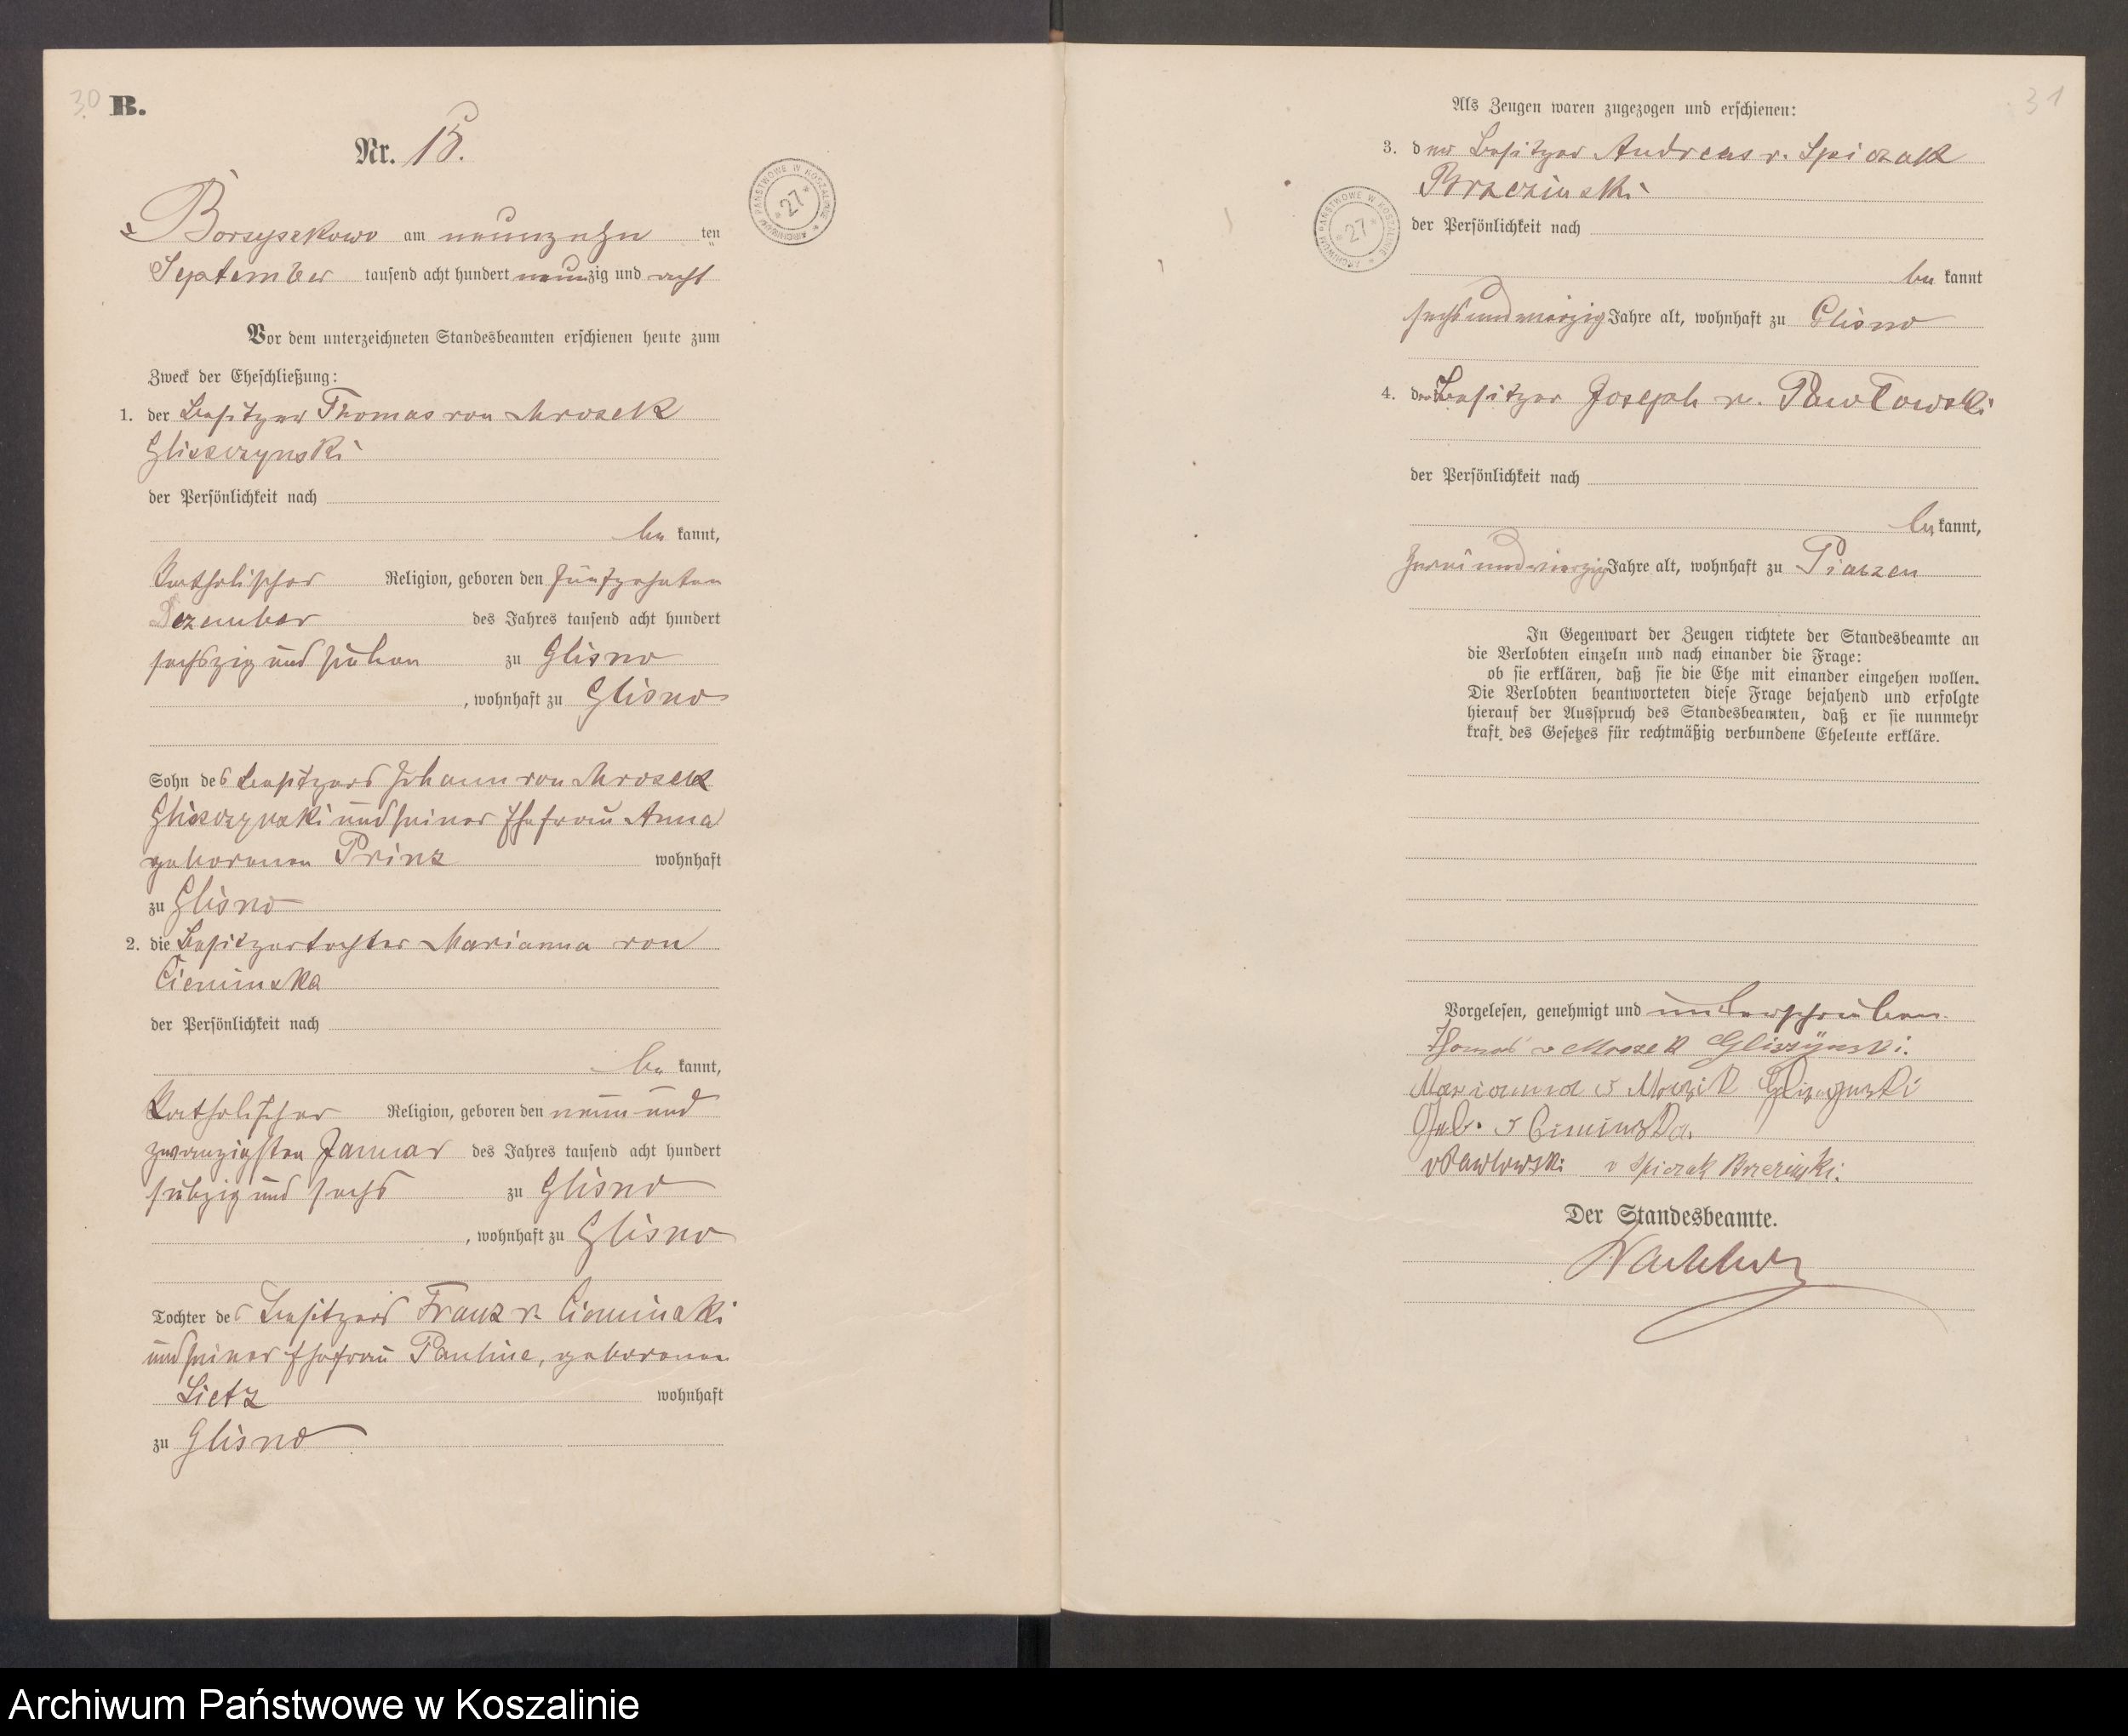 30
B.
Nr. 15.
Borzyszkowo am neunzehn ten
September tausend acht hundert neunzig und acht
Vor dem unterzeichneten Standesbeamten erschienen heute zum
Zweck der Eheschließung:
1. der Besitzer Thomas von Mrosek
Glisczynski
der Persönlichkeit nach
be kannt,
katholischer Religion, geboren den fünfzehnten
Dezember des Jahres tausend acht hundert
sechszig und sieben zu Glisno
, wohnhaft zu Glisno
Sohn des Besitzers Johann von Mrosek
Glisczynski und seiner Ehefrau Anna
geborenen Prinz wohnhaft
zu Glisno
2. die Besitzertochter Marianna von
Cieminska
der Persönlichkeit nach
be kannt,
katholischer Religion, geboren den neun und
zwanzigsten Januar des Jahres tausend acht hundert
siebzig und sechs zu Glisno
, wohnhaft zu Glisno
Tochter des Besitzers Franz v. Cieminski
und seiner Ehefrau Pauline, geborenen
Lietz wohnhaft
zu Glisno
ARCHIWUM PAŃSTWOWE W KOSZALINIE
* 27 *
31
Als Zeugen waren zugezogen und erschienen:
3. der Besitzer Andreas v. Spiczak
Brzezinski
der Persönlichkeit nach
be kannt
sechsundvierzig Jahre alt, wohnhaft zu Glisno
4. der Besitzer Joseph v. Pawlowski
der Persönlichkeit nach
be kannt,
zwei und vierzig Jahre alt, wohnhaft zu Piaszen
In Gegenwart der Zeugen richtete der Standesbeamte an
die Verlobten einzeln und nach einander die Frage:
ob sie erklären, daß sie die Ehe mit einander eingehen wollen.
Die Verlobten beantworteten diese Frage bejahend und erfolgte
hierauf der Ausspruch des Standesbeamten, daß er sie nunmehr
kraft des Gesetzes für rechtmäßig verbundene Eheleute erkläre.
Vorgelesen, genehmigt und unterschrieben.
Thomas v Mrosek Gliszynski.
Marianna v Mrozik Gliszynski
Geb. v Ciminska.
v Pawlowski v Spiczak Brzezinski.
Der Standesbeamte.
ARCHIWUM PAŃSTWOWE W KOSZALINIE
* 27 *
Archiwum Państwowe w Koszalinie